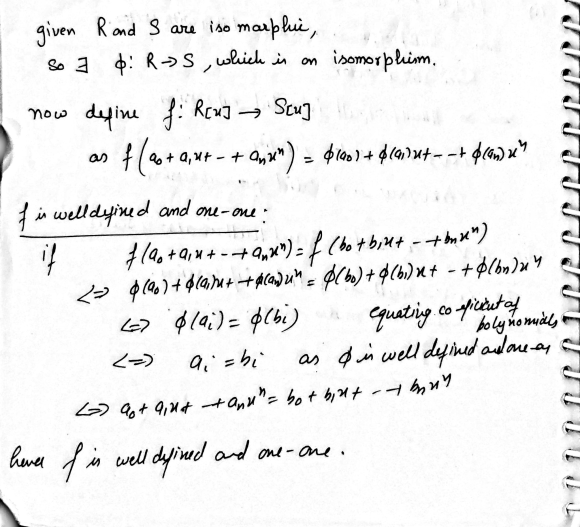 given R and S are isomorphic,
So ∃ φ: R→S, which is an isomorphism.
now define f: R[x] → S[x]
as f(a₀ + a₁x + - + aₙxⁿ) = φ(a₀) + φ(a₁)x + - - + φ(aₙ)xⁿ
f is well defined and one-one:
if f(a₀ + a₁x + - - + aₙxⁿ) = f(b₀ + b₁x + - + bₙxⁿ)
<=> φ(a₀) + φ(a₁)x + - + φ(aₙ)xⁿ = φ(b₀) + φ(b₁)x + - + φ(bₙ)xⁿ
<=> φ(aᵢ) = φ(bᵢ) equating co-efficient of
polynomials
<=> aᵢ = bᵢ as φ is well defined and one-one
<=> a₀ + a₁x + - + aₙxⁿ = b₀ + b₁x + - - + bₙxⁿ
hence f is well defined and one-one.